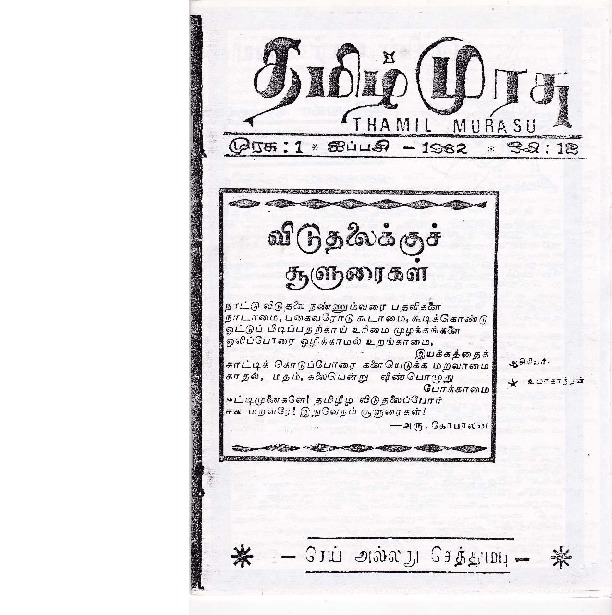 தமிழ் முரசு
THAMIL MURASU
முரசு : 1 * ஐப்பசி - 1982 * ஒலி : 12
விடுதலைக்குச்
சூளுரைகள்
நாட்டு விடுதலை நண்ணும்வரை பதவிகளை
நாடாமை, பகைவரோடு கூடாமை, கூடிக்கொண்டு
ஒட்டுப் பிடிப்பதற்காய் உரிமை முழக்கங்களை
ஒலிப்போரை ஒழிக்காமல் உறங்காமை,
இயக்கத்தைக்
காட்டிக் கொடுப்போரை களையெடுக்க மறவாமை
காதல், மதம், கலையென்று வீண்பொழுது
போக்காமை
தமிழீழ விடுதலைப்போர்
மறவரே! இறுவேதம் சூளுரைகள்!
—அரு. கோபாலன்
ஆசிரியர்.
★ உமாகாந்தன்
* — செய் அல்லது செத்துமடி — *